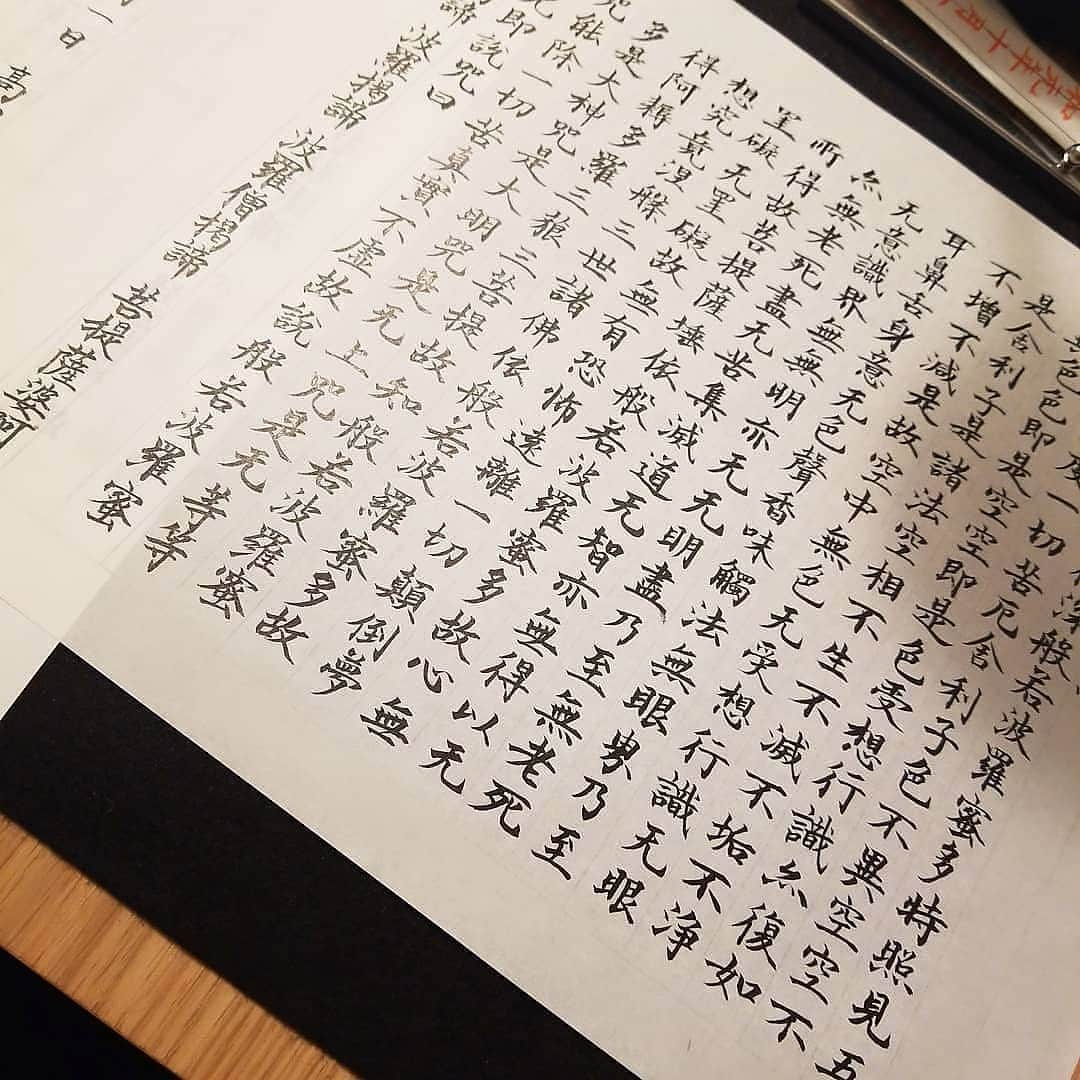 深般若波羅蜜多時照見五
度一切苦厄舍利子色不異空空不
色色即是空空即是色受想行識亦復如
是舍利子是諸法空相不生不滅不垢不淨
不增不減是故空中無色无受想行識无眼
耳鼻舌身意无色聲香味觸法無眼界乃至
无意識界無無明亦无無明盡乃至無老死
亦無老死盡无苦集滅道无智亦無得以无
所得故菩提薩埵依般若波羅蜜多故心無
罣礙无罣礙故無有恐怖遠離一切顛倒夢
想究竟涅槃三世諸佛依般若波羅蜜多故
得阿耨多羅三藐三菩提故知般若波羅蜜
多是大神咒是大明咒是无上咒是无等等
咒能除一切苦真實不虛故說般若波羅蜜
咒即說咒曰
諦 波羅揭諦 波羅僧揭諦 菩提薩婆訶
一日 高
元年十月